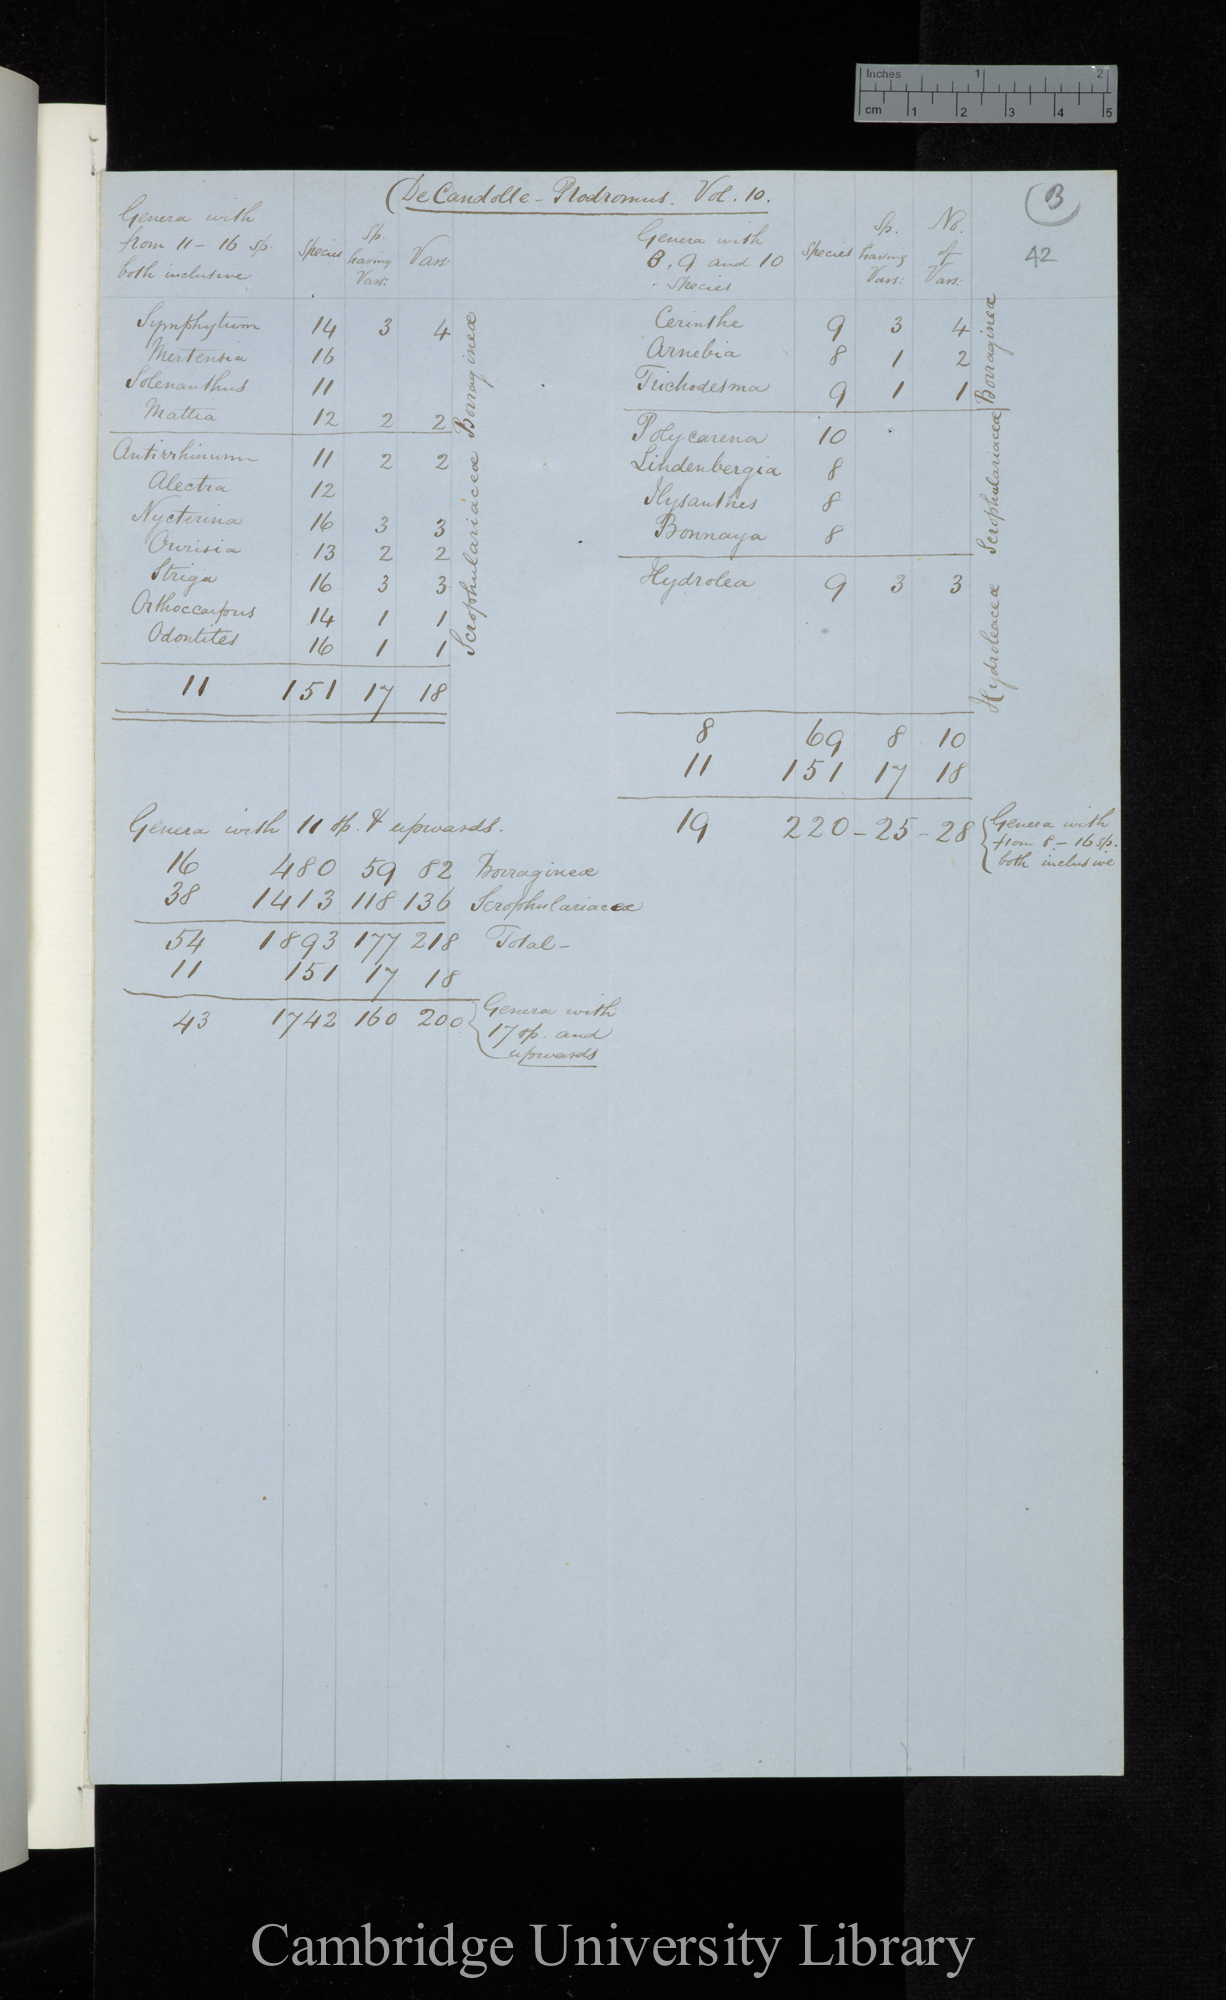 Inches 1 2
cm 1 2 3 4 5
(DeCandolle - Prodromus. Vol. 10.
B
42
Genera with
from 11 - 16 sp.
both inclusive
Species
Sp. having Vars:
Vars:
Symphytum 14 3 4
Mertensia 16
Solenanthus 11
Mattia 12 2 2
Borragineæ
Antirrhinum 11 2 2
Alectra 12
Nycterina 16 3 3
Ourisia 13 2 2
Striga 16 3 3
Orthoccarpus 14 1 1
Odontites 16 1 1
Scrophulariaceæ
11 151 17 18
Genera with
8, 9 and 10
Species
Species
Sp. having Vars:
No. of Vars:
Cerinthe 9 3 4
Arnebia 8 1 2
Trichodesma 9 1 1
Borragineæ
Polycarena 10
Lindenbergia 8
Ilysanthes 8
Bonnaya 8
Scrophulariaceæ
Hydrolea 9 3 3
Hydroleaceæ
8 69 8 10
11 151 17 18
19 220 - 25 - 28 { Genera with
from 8 - 16 sp.
both inclusive
Genera with 11 sp. & upwards.
16 480 59 82 Borragineæ
38 1413 118 136 Scrophulariaceæ
54 1893 177 218 Total -
11 151 17 18
43 1742 160 200 { Genera with
17 sp. and
upwards
Cambridge University Library